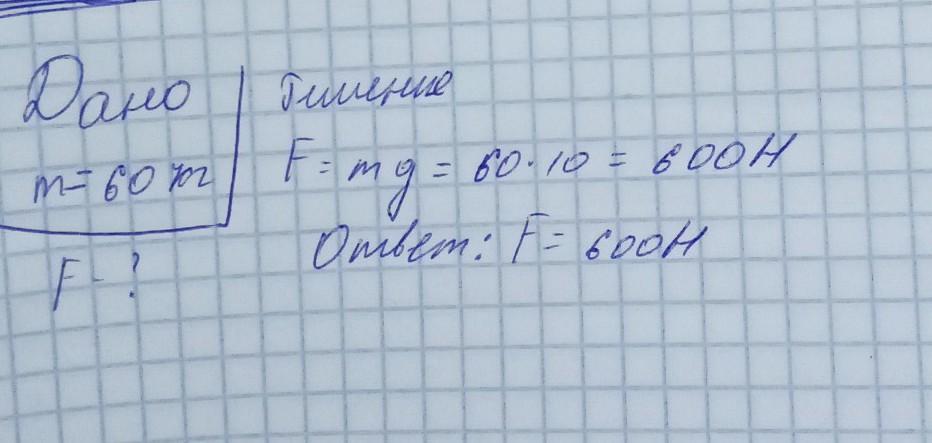 Дано
m = 60 кг
F - ?
Решение
F = mg = 60 · 10 = 600Н
Ответ: F = 600Н